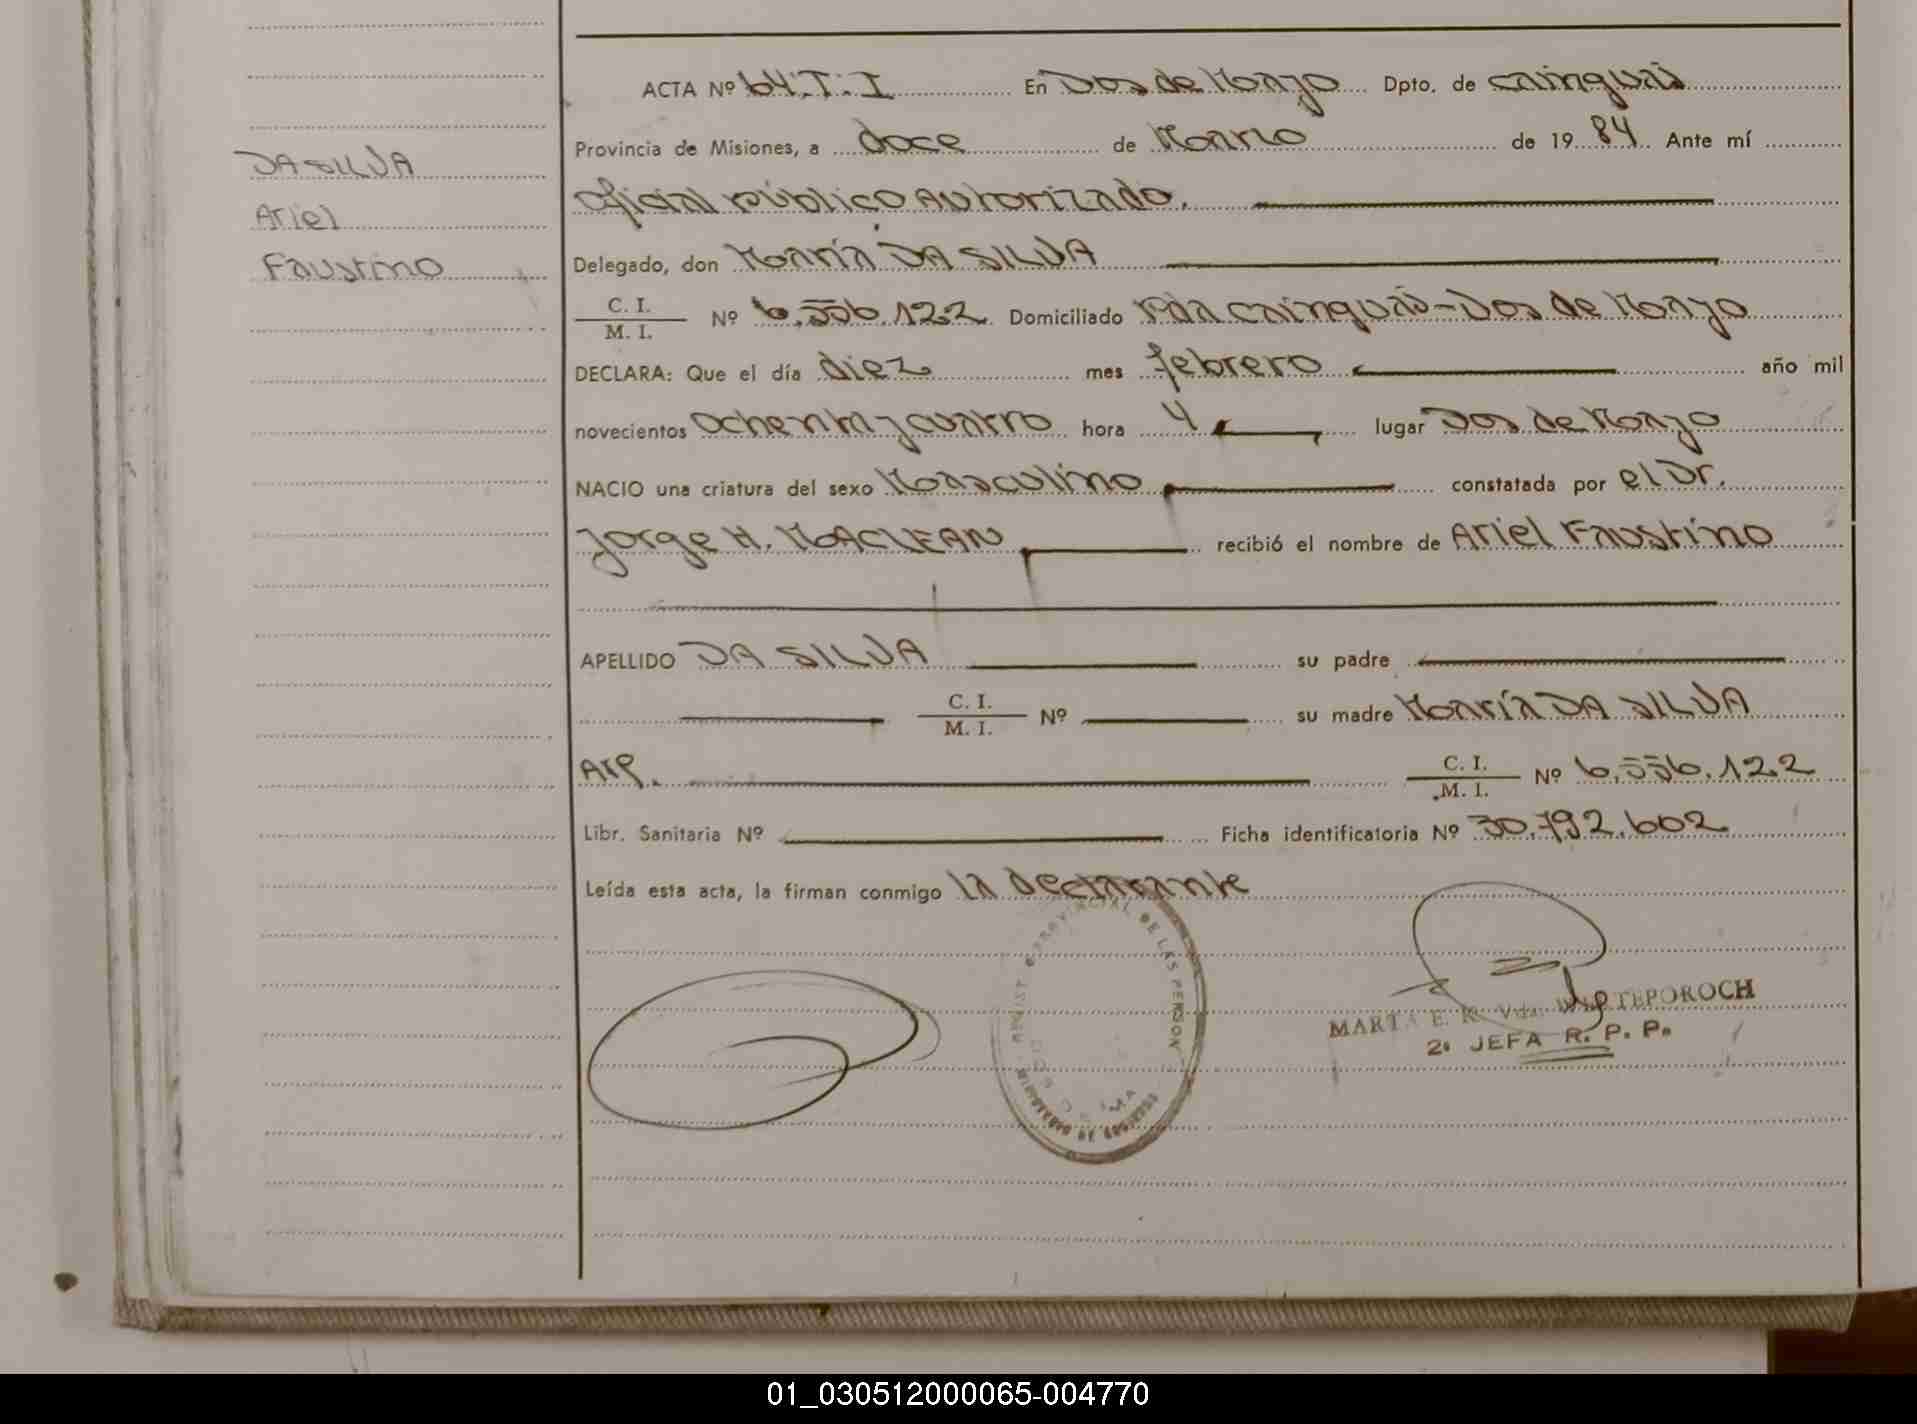 ACTA Nº 64.T.I En Dos de Mayo Dpto. de Cainguás
Provincia de Misiones, a doce de Marzo de 1984 Ante mí
Oficial público Autorizado.
Delegado, don María DA SILVA
C. I.
M. I. Nº 6.556.122 Domiciliado Pda Cainguás - Dos de Mayo
DECLARA: Que el día diez mes febrero año mil
novecientos ochenta y cuatro hora 4 lugar Dos de Mayo
NACIO una criatura del sexo Masculino constatada por el Dr.
Jorge H. MACLEAN recibió el nombre de Ariel Faustino
APELLIDO DA SILVA su padre
C. I.
M. I. Nº su madre María DA SILVA
Arg. C. I.
M. I. Nº 6.556.122
Libr. Sanitaria Nº Ficha identificatoria Nº 30.792.602
Leída esta acta, la firman conmigo la declarante
DA SILVA
Ariel
Faustino
PROVINCIAL DE LAS PERSON
MARTA E. K. Vda.
2a JEFA R. P. P.
01_030512000065-004770